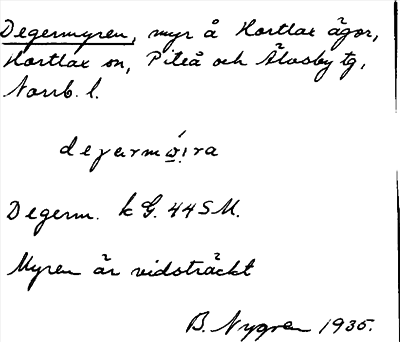 Degermyren, myr å Hortlax ägor,
Hortlax sn, Piteå och Älvsby tg,
Norrb. l.
Degerm. kG. 44SM.
Myren är vidsträckt
B. Nygren 1935.